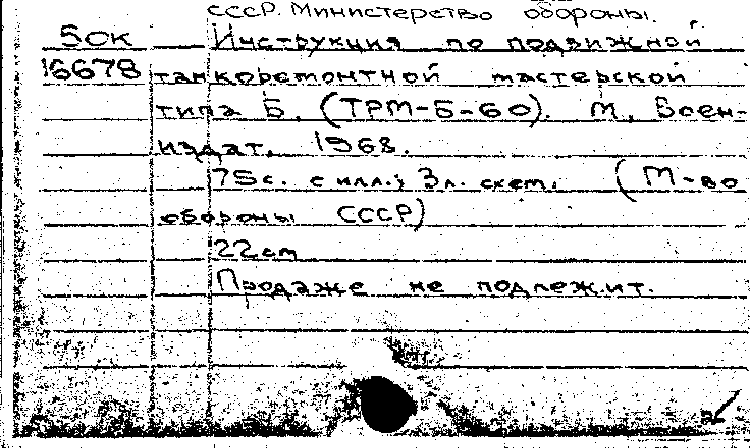 СССР. Министерство обороны.
50К Инструкция по подвижной
16678 танкоремонтной мастерской
типа Б. (ТРМ-Б-60). М., Воен-
издат, 1968.
75с. с илл.; 3л. схем. (М-во
обороны СССР)
22cm
Продаже не подлежит.